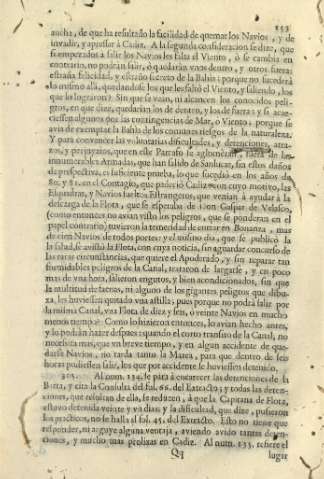 153
ancha, de que ha resultado la facilidad de quemar los Navios, y de
invadir, y apressar à Cadiz. A la segunda consideracion se dize, que
si empezados à salir los Navios les falta el Viento, ò se cambia en
contrario, no podràn salir, ò quedaràn vnos dentro, y otros fuera:
estraña felicidad, y estraño secreto de la Bahia; porque no sucederà
lo mismo allà, quedandose los que les faltò el Viento, y saliendo, los
que lo lograron? Sin que se vean, ni alcancen los conocidos peli-
gros, en que dize, quedarian los de dentro, y los de fuera, y si acae-
ciessen algunos por las contingencias de Mar, ò Viento; porque se
avia de exemptar la Bahia de los comunes riesgos de la naturaleza.
Y para convencer las voluntarias dificultades, y detenciones,
tos, y perjuyzios, que en este Parrafo se fuera de las
innumerables Armadas, que han salido de Sanlucar, sin estas dudas
de perspectiva, es suficiente prueba, lo que sucediò en los años de
80. y 81. en el Contagio, que padeciò Cadiz, con cuyo motivo, las
Esquadras, y Navios sueltos Estrangeros, que venian à ayudar à la
descarga de la Flota, que se esperaba de Don Gaspar de Velasco,
(como entonces no avian visto los peligros, que se ponderan en el
papel contrario) tuvieron la temeridad de entrar en Bonanza, mas
de cien Navios de todos portes: y el mismo dia, que se publicò la
salud, se avistò la Flota, con cuya noticia, sin aguardar concurso de
las raras circunstancias, que quiere el Apoderado, y sin reparar tan
formidables peligros de la Canal, trataron de largarse, y en poco
mas de vna hora, salieron enjutos, y bien acondicionados, sin que
la multitud de fueros, ni alguno de los gigantes peligros que dibu-
xa, les huviessen quitado vna astilla; pues porque no podrà salir por
la misma Canal, vna Flota de diez y seis, ò veinte Navios en mucho
menos tiempo? Como lo hizieron entonces, lo avian hecho antes,
y lo podràn hazer despues: quando el corto transito de la Canal, no
necessita mas, que vn breve tiempo, y en algun accidente de que-
darse Navios, no tarda tanto la Marea, para que dentro de seis
horas pudiessen salir, los que por accidente se huviessen detenido.
Al num. 134. para à encarecer las detenciones de la
Barra, y cita la Consulta del fol. 65. del Extracto; y todas las deten-
ciones, que resultan de ella, se reducen, à que la Capitana de Flota,
estuvo detenida veinte y vn dias; y la dificultad, que dize, pusieron
los practicos, no se halla al fol. 45. del Extracto. Esto no tiene que
responder, ni arguye alguna ventaja, aviendo avido tantas deten-
ciones, y mucho mas prolixas en Cadiz. Al num. 135. refiere el
Qq
lugar